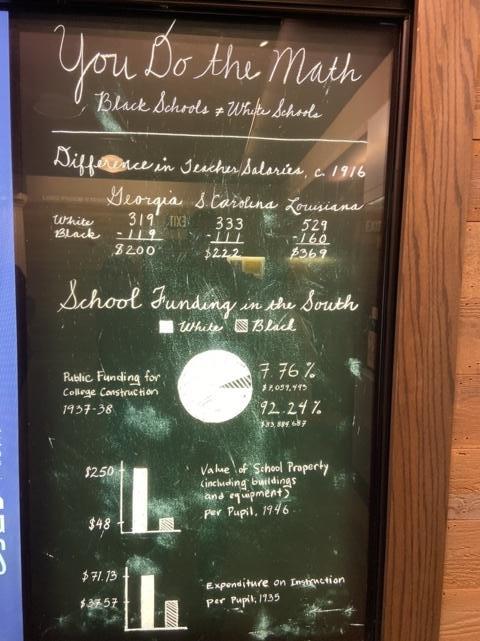 You Do the Math
Black Schools ≠ White Schools
Difference in Teacher Salaries, c. 1916
Georgia S. Carolina Louisiana
White 319 333 529
Black -119 -111 -160
$200 $222 $369
School Funding in the South
White Black
Public Funding for
College Construction
1937-38
7.76%
92.24%
$250
$48
Value of School Property
(including buildings
and equipment)
per Pupil, 1946
$71.73
$37.57
Expenditure on Instruction
per Pupil, 1935